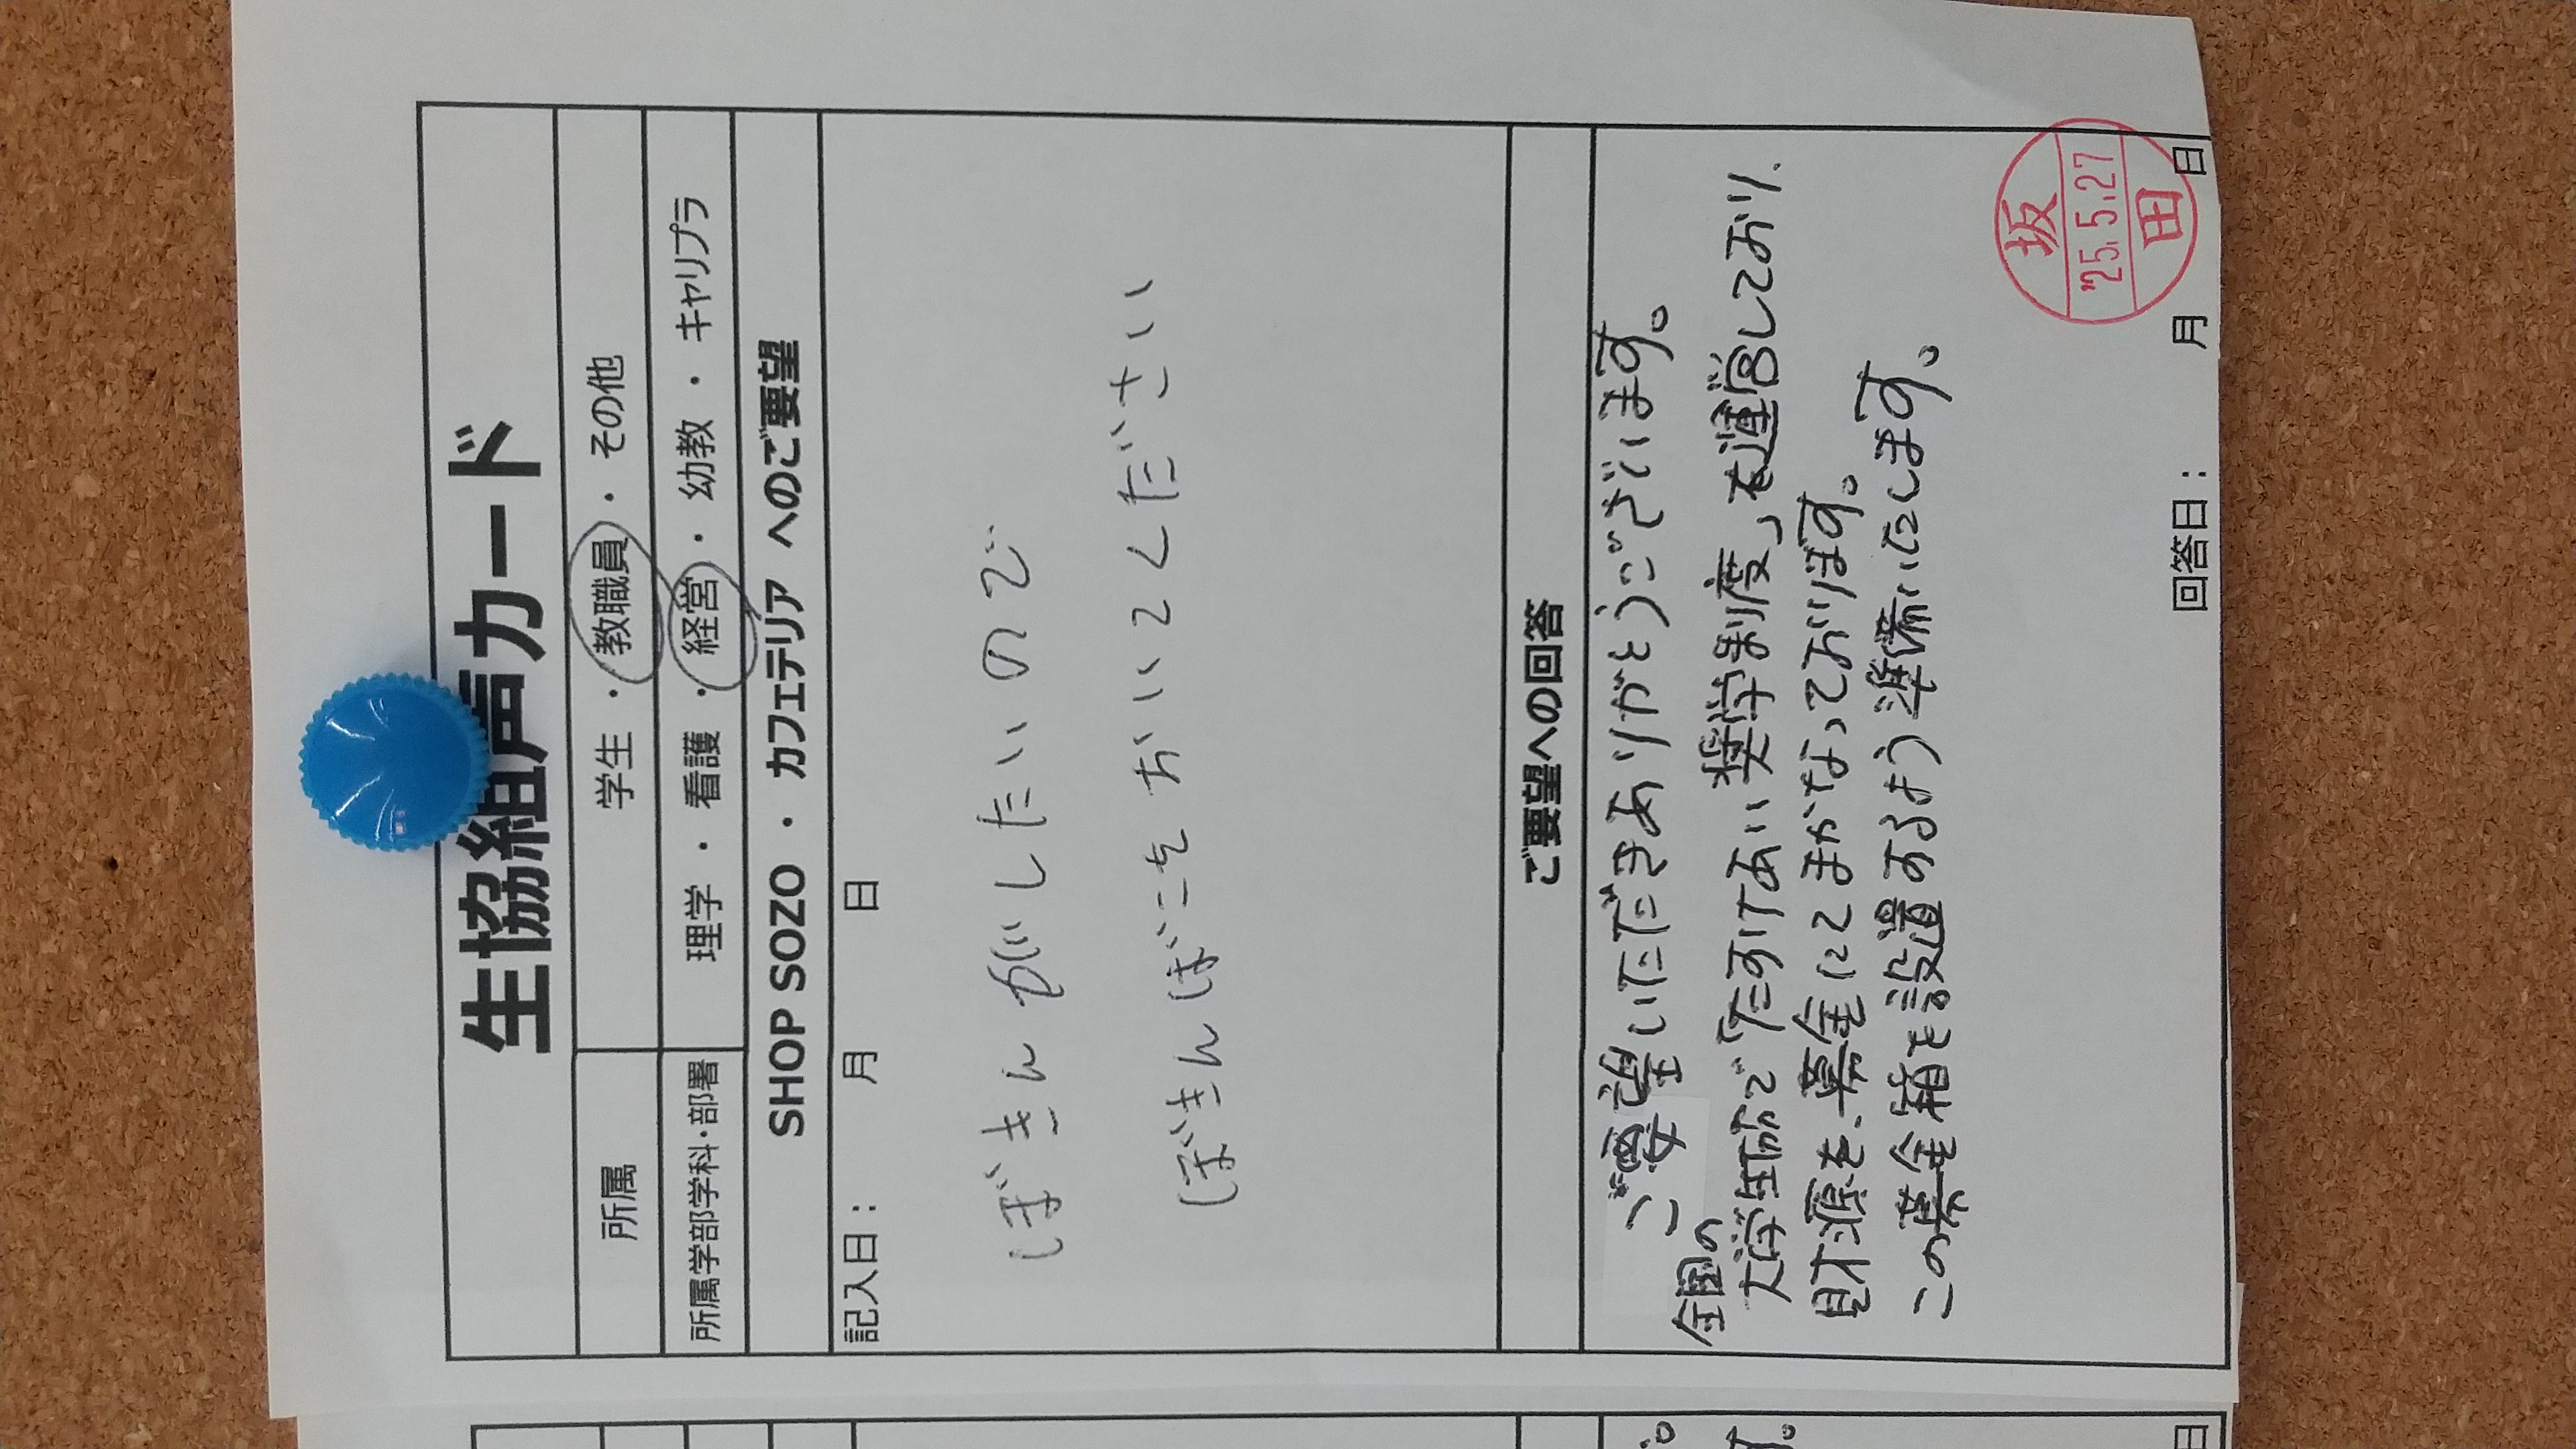 生協組声カード
所属 学生 ・ 教職員 ・ その他
所属学部学科・部署 理学 ・ 看護 ・ 経営 ・ 幼教 ・ キャリプラ
SHOP SOZO ・ カフェテリア へのご要望
記入日: 月 日
ぼきんがしたいので
ぼきんばこを おいてください
ご要望への回答
ご要望いただきありがとうございます。
全国の
大学生協で「たすけあい奨学制度」を運営しており、
財源を、募金にてまかなっております。
この募金箱を設置するよう準備いたします。
回答日: 月 日
坂
'25.5.27
田
す。
日